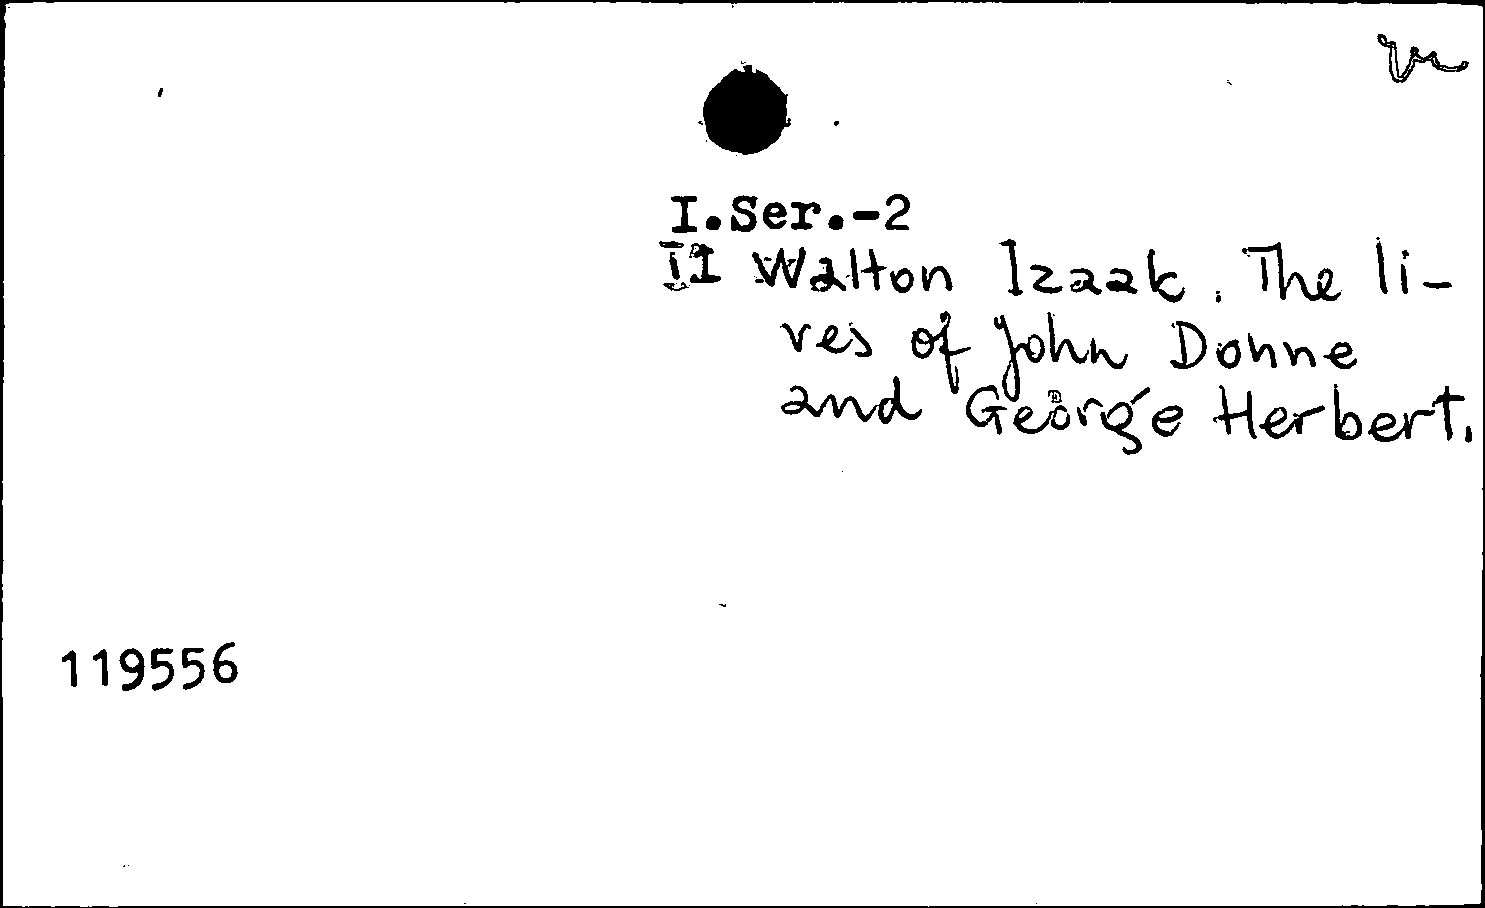 I.Ser.-2
II Walton Izaak. The li-
ves of John Donne
and George Herbert.
119556